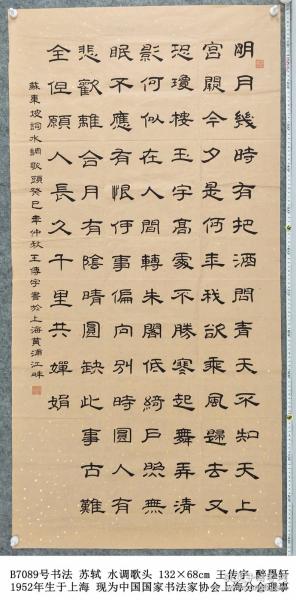 明月幾時有把酒問青天不知天上
宮闕今夕是何年我欲乘風歸去又
恐瓊樓玉宇高處不勝寒起舞弄清
影何似在人間轉朱閣低綺戶照無
眠不應有恨何事偏向別時圓人有
悲歡離合月有陰晴圓缺此事古難
全但願人長久千里共嬋娟
蘇東坡詞水調歌頭癸巳年仲秋王傳宇書於上海黃浦江畔
B7089号书法 苏轼 水调歌头 132×68cm 王传宇 醉墨轩
1952年生于上海 现为中国国家书法家协会上海分会理事